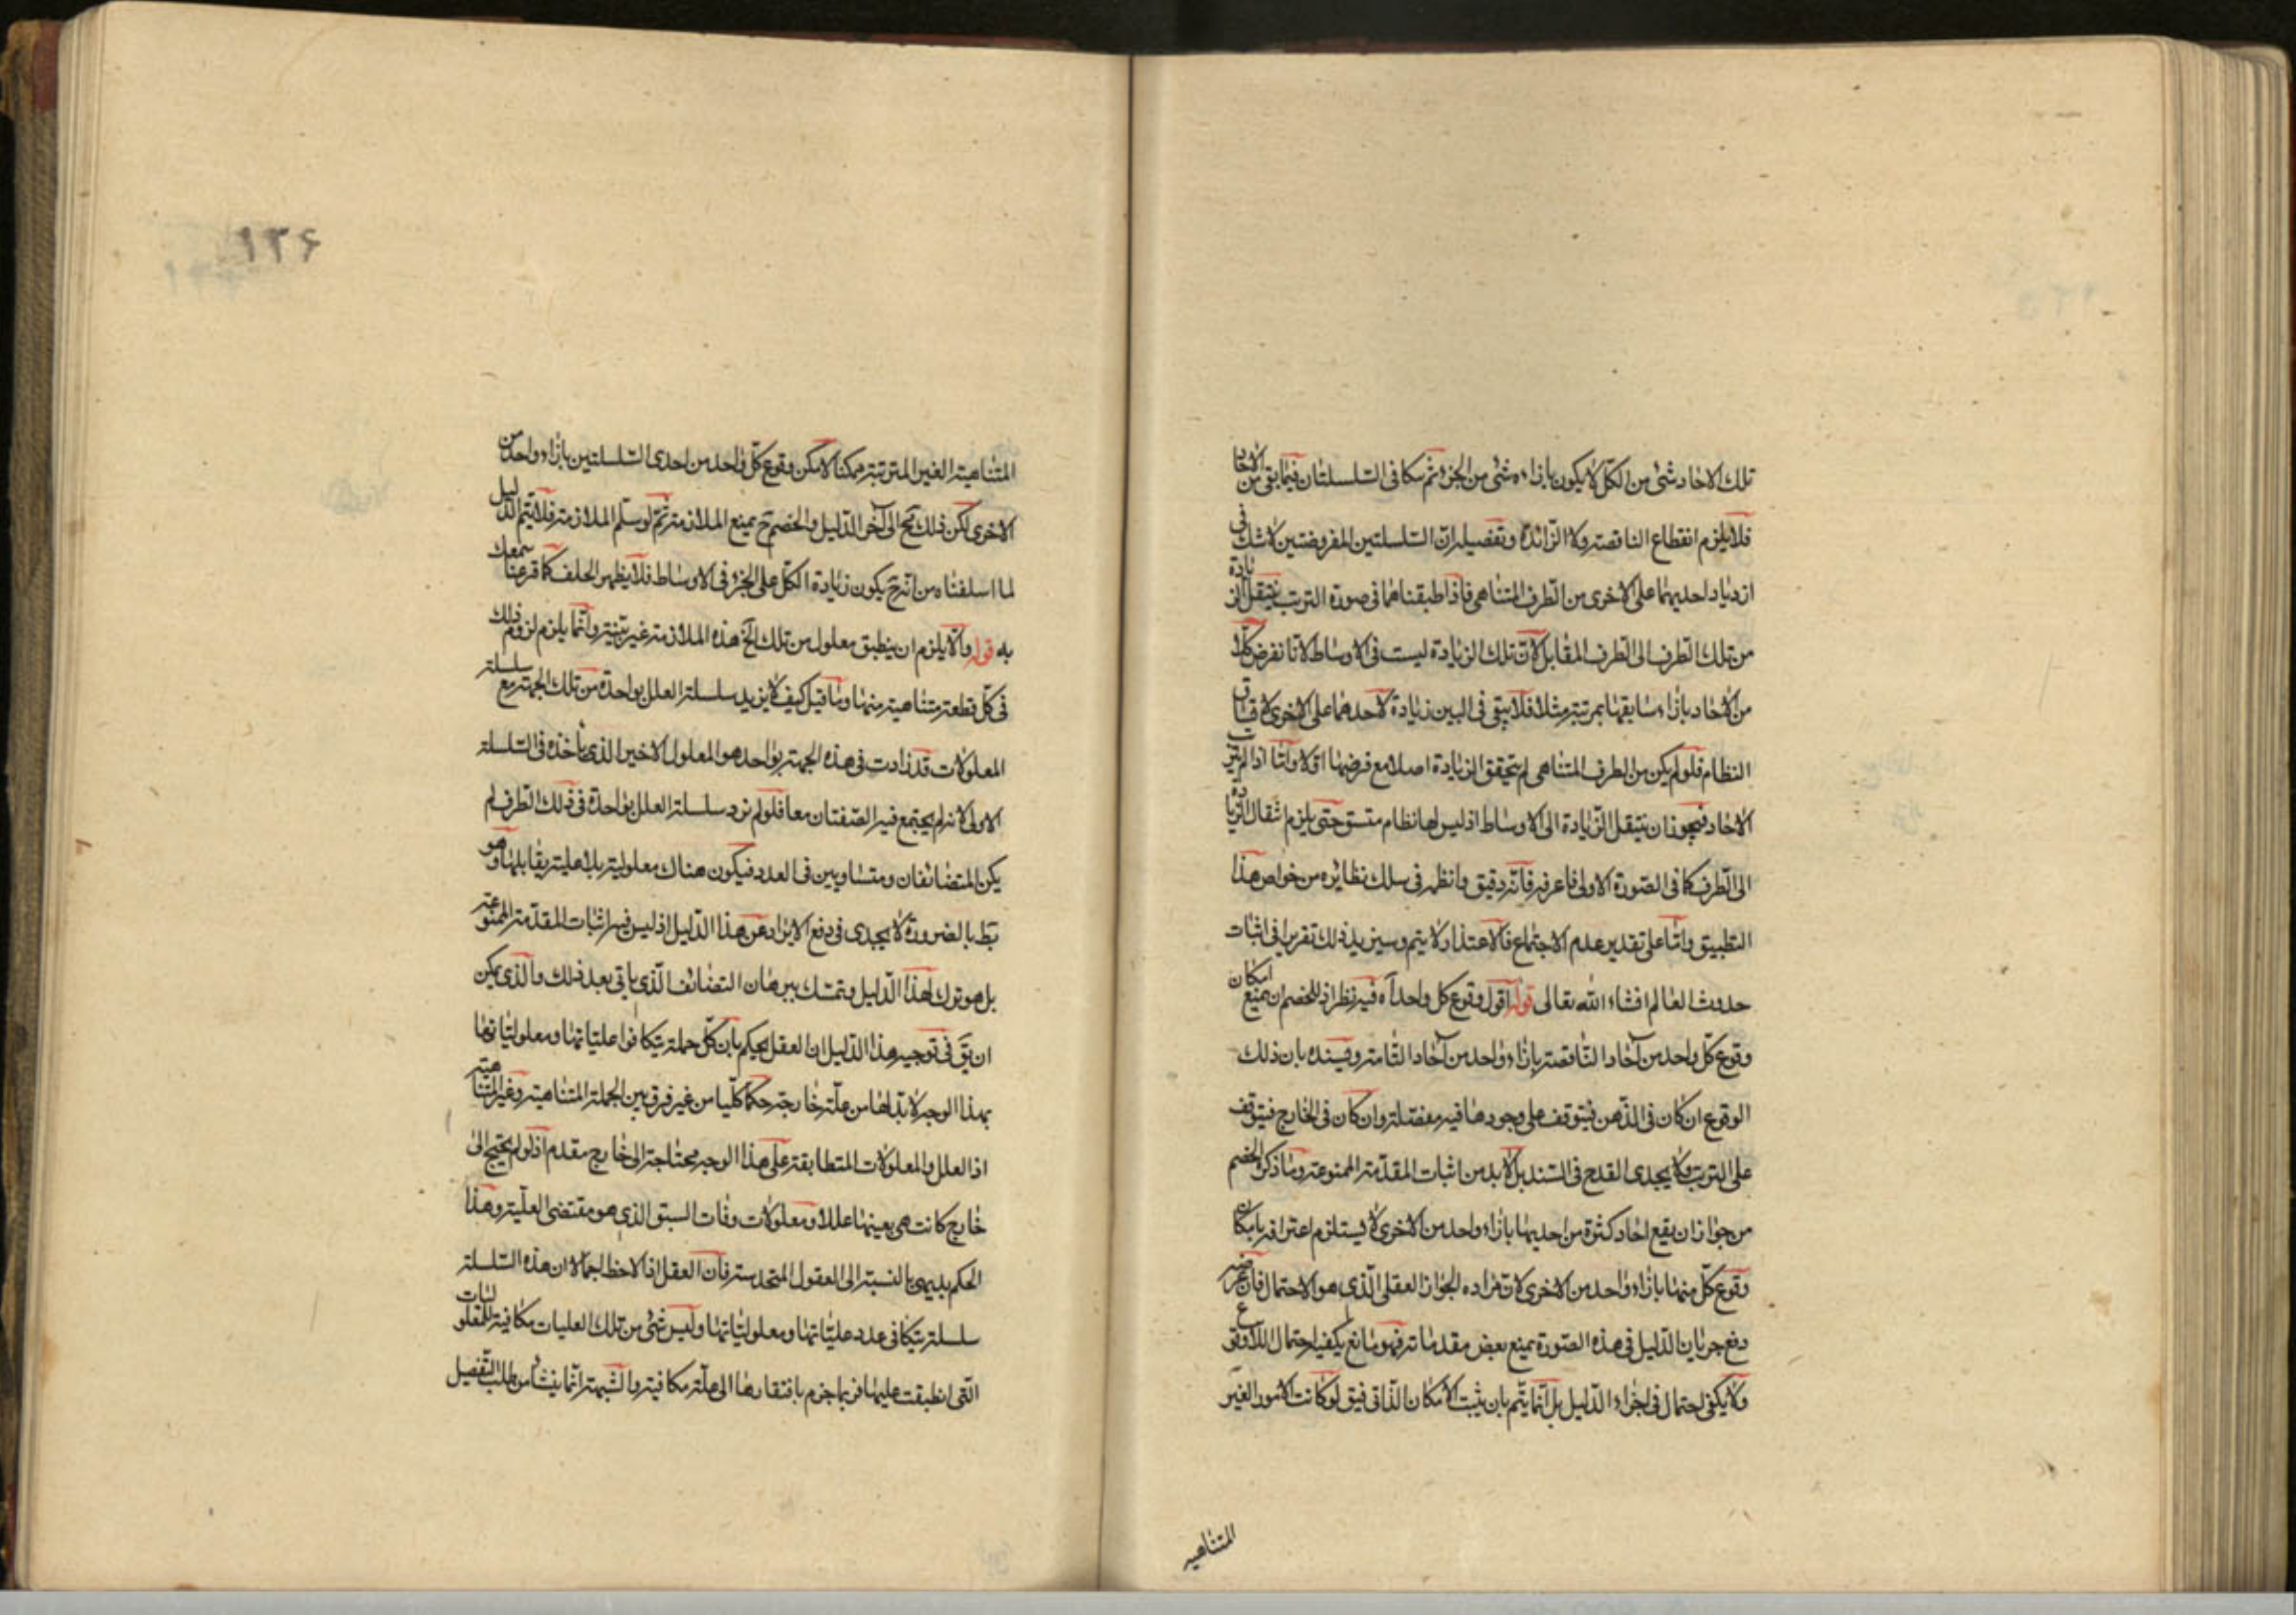 تلك الاحاد شئ من الكل لا يكون بازاءه شئ من الجزء ثم تكافى السلسلتان فيما بقى من الاحاد
فلا يلزم انقطاع الناقصة ولا الزائدة وتفصيله ان السلسلتين المفروضتين لا شك فى
ازدياد احديهما على الاخرى من الطرف المتناهى فاذا طبقناهما فى صورة الترتب ينتقل الزيادة
من تلك الطرف الى الطرف المقابل لان تلك الزيادة ليست فى الاوساط لانا نفرض كلا
من الاحاد بازاء سابقها بمرتبة مثلا فلا يبقى فى البين زيادة لاحدهما على الاخرى لاتساق
النظام فلو لم يكن من الطرف المتناهى لم يتحقق الزيادة اصلا مع فرضها اولا واما اذا لم يترتب
الاحاد فيجوز ان ينتقل الزيادة الى الاوساط اذ ليس لها نظام متسق حتى يلزم انتقال الزيادة
الى الطرف كما فى الصورة الاولى فاعرفه فانه دقيق وانظره فى سلك نظائره من خواص هذا
التطبيق واما على تقدير عدم الاجتماع فالاعتذار لا يتم وسيزيد ذلك تقريرا فى اثبات
حدوث العالم انشاء الله تعالى قوله اقول وقوع كل واحد اه فيه نظر اذ للخصم ان يمنع امكان
وقوع كل واحد من آحاد الناقصة بازاء واحد من آحاد التامة ويسنده بان ذلك
الوقوع ان كان فى الذهن فيتوقف على وجودها فيه مفصلة وان كان فى الخارج فيتوقف
على الترتب ولا يجدى القدح فى السند بل لا بد من اثبات المقدمة الممنوعة وما ذكره الخصم
من جواز ان يقع احاد كثرة من احديهما بازاء واحد من الاخرى لا يستلزم اعترافه بامكان
وقوع كل منهما بازاء واحد من الاخرى لان مراده الجواز العقلى الذى هو الاحتمال فان غرضه
دفع جريان الدليل فى هذه الصورة بمنع بعض مقدماته فهو مانع يكفيه احتمال اللاوقوع
ولا يكفى احتمال فى اجراء الدليل بل انما يتم بان يثبت الامكان الذاتى فيق لو كانت الامور الغير
المتناهيه
١٢۶
المتناهية الغير المترتبة ممكنا لامكن وقوع كل واحد من احدى السلسلتين بازاء واحد من
الاخرى لكن ذلك مح الى آخر الدليل والخصم ح يمنع الملازمة ثم لو سلم الملازمة فلا يتم الدليل
لما اسلفناه من انه ح يكون زيادة الكل على الجزء فى الاوساط فلا يظهر الخلف كما قرعنا سمعك
به قوله والا يلزم ان ينطبق معلول من تلك الخ هذه الملازمة غير بينة وانما يلزم لزوم ذلك
فى كل قطعة متناهية منها وما قيل كيف لا يزيد سلسلة العلل بواحدة من تلك الجهة مع سلسلة
المعلولات قد زادت فى هذه الجهة بواحد هو المعلول الاخير الذى نأخذه فى السلسلة
الاولى لانه لم يجتمع فيه الصفتان معا فلو لم تزد سلسلة العلل بواحدة فى ذلك الطرف لم
يكن المتضائفان ومتساويين فى العدد فيكون هناك معلولية بلا علية يقابلها وهو
بط بالضرورة لا يجدى فى دفع الايراد عن هذا الدليل اذ ليس فيه اثبات المقدمة الممنوعة
بل هو ترك لهذا الدليل وتمسك ببرهان التضائف الذى ياتى بعد ذلك والذى يمكن
ان يق فى توجيه هذا الدليل ان العقل يحكم بان كل جملة يتكافوا علياتها ومعلولياتها
بهذا الوجه لا بد لها من علة خارجة حكما كليا من غير فرق بين الجملة المتناهية وغير المتناهية
اذ العلل والمعلولات المتطابقة على هذا الوجه محتاجة الى خارج مقدم اذ لو لم يحتج الى
خارج كانت هى بعينها عللا ومعلولات وفات السبق الذى هو مقتضى العلية وهذا
الحكم بديهى بالنسبة الى العقول المتحدسة فان العقل اذا لاحظ اجمالا ان هذه السلسلة
سلسلة يتكافى عدد علياتها ومعلولياتها وليس شئ من تلك العليات مكافية للمعلوليات
التى انطبقت عليها فربما جزم بافتقارها الى علة مكافية والشبهة انما ينشأ من طلب التفصيل